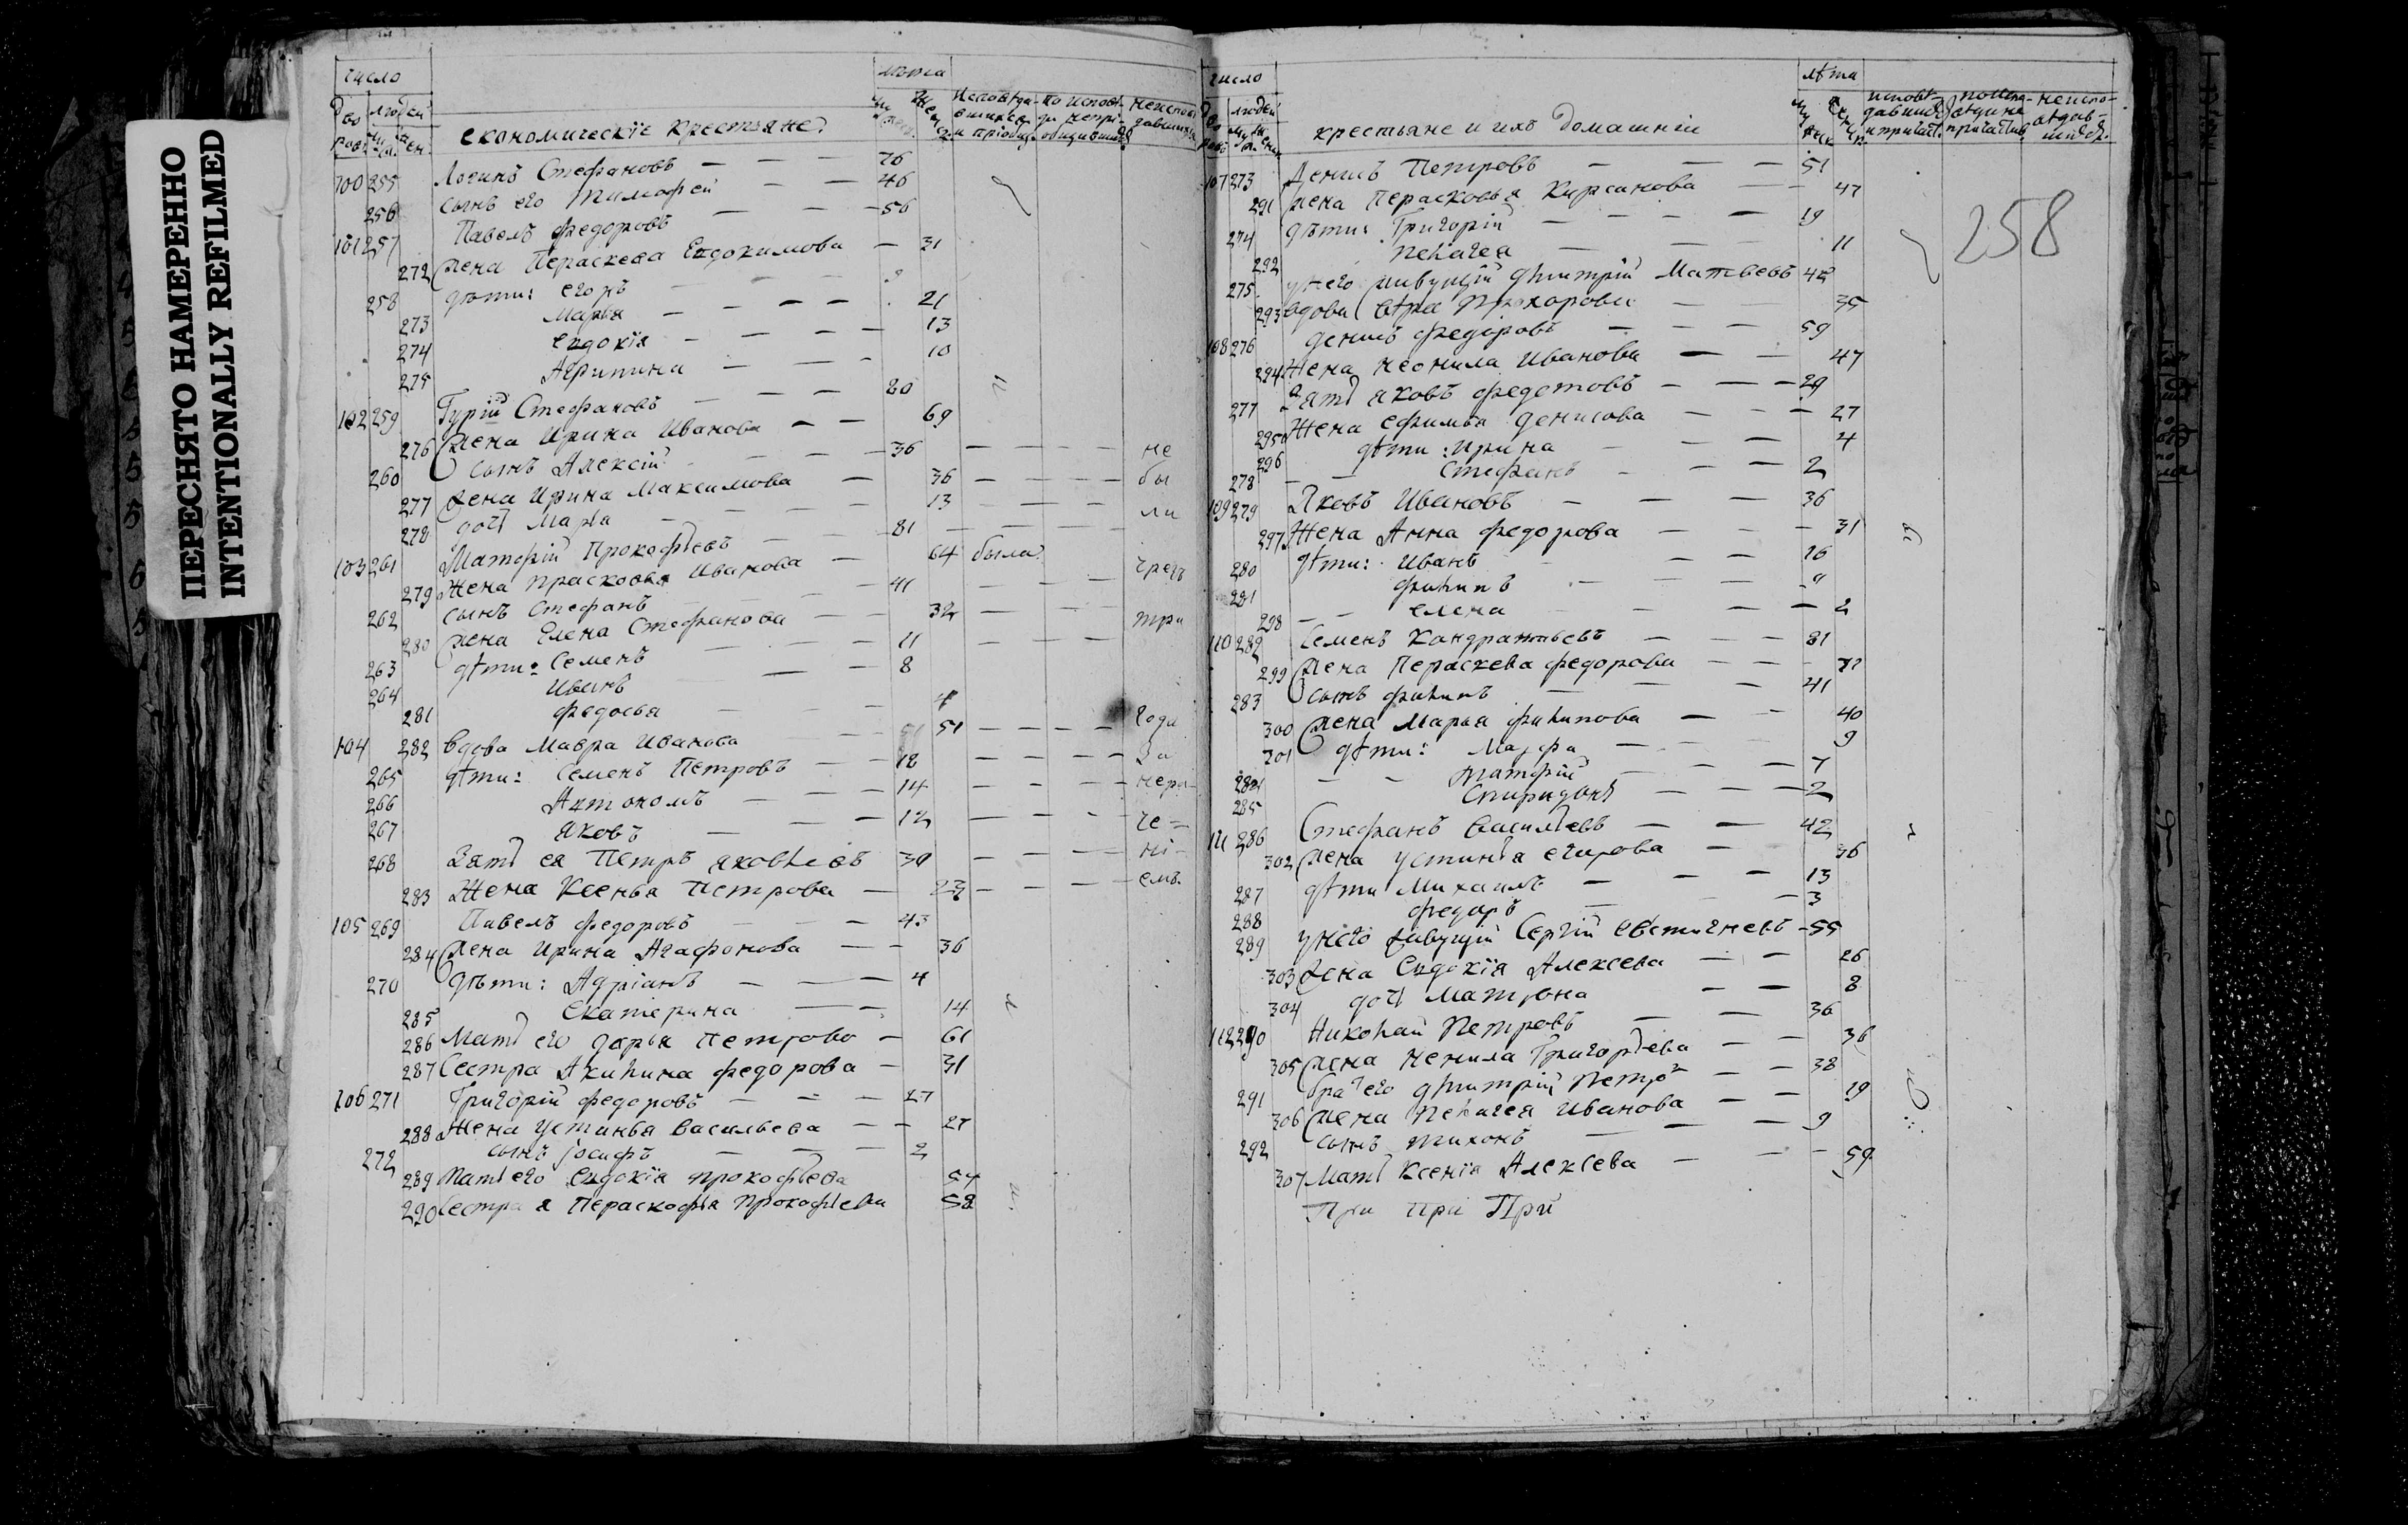 ПЕРЕСНЯТО НАМЕРЕННО
INTENTIONALLY REFILMED
число лѣта
людей
економическіе крестьяне
100 255 Логинъ Стефановъ — — — 76
256 сынъ его Тимофей — — 46
101 257 Павелъ Федоровъ — — — 56
272 жена Пераскева Евдокимова — 31
258 дѣти: егоръ — — —
273 Марья — — — 21
274 Евдокія — — — 13
275 Агрипина — — 10
102 259 Гурій Стефановъ — — — 80
276 жена Ирина Иванова — — 69
260 сынъ Алексій — — — 36 — — — не
277 жена Ирина Максимова — 36 — — — бы
278 дочь Марѳа — — — 13 — — — ли
103 261 Матфій Прокофьевъ — — 81
279 жена Прасковья Иванова — 64 была
262 сынъ Стефанъ — — 41 — — — чрезъ
280 жена Елена Стефанова — 32 — — — три
263 дѣти: Семенъ — — 11
264 Иванъ — — 8
281 федосья — — — 4
104 282 вдова Мавра Иванова — — 51 — — — года
265 дѣти: Семенъ Петровъ — — 18 — — — за
266 Автономъ — — — 14 — — — нера-
267 яковъ — — — 12 — — — че-
268 Зять ея Петръ яковлевъ 30 — — — ні-
283 Жена Ксенья Петрова — 27 — — — емъ.
105 269 Павелъ федоровъ — — — 43
284 жена Ирина Агафонова — — 36
270 дѣти: Адріанъ — — — 4
285 Екатерина — — 14
286 Мать его дарья Петрова — 61
287 Сестра Акилина федорова — 31
106 271 Григорій федоровъ — — — 27
288 Жена Устинья Васильева — — 27
272 сынъ Іосифъ — — — 2
289 Мать его Евдокія прокофьева 57
290 Сестра я Пераскофья Прокофьева 58
число лѣта
людей
крестьяне и ихъ домашніи
107 273 Денисъ Петровъ — — — 51
291 жена Перасковья Кирсанова — — 47
274 дѣти: Григорій — — — 19
292 Пелагея — — — 11
258
275 у него живущій дмитрій Матвеевъ 42
293 вдова Вѣра Прохорова — — 35
108 276 денисъ федоровъ — — — 59
294 Жена неонила Иванова — — 47
277 Зять яковъ федотовъ — — — 29
295 Жена ефимья денисова — — — 27
296 дѣти: Ирина — — — 4
278 — — Стефанъ — — — 2
109 279 Яковъ Ивановъ — — — 36
297 Жена Анна федорова — — — 31
280 дѣти: Иванъ — — — 16
281 филипъ — — —
298 — — елена — — — 2
110 282 Семенъ Кондратьевъ — — — 81
299 жена Пераскева федорова — — — 71
283 сынъ филипъ — — — 41
300 жена Марья филипова — — 40
301 дѣти: Марфа — — — 9
284 — — матфій — — — 7
285 Спиридонъ — — — 2
111 286 Стефанъ Васильевъ — — 42
302 жена устинья егорова — — 36
287 дѣти Михаилъ — — — 13
288 федоръ — — — 3
289 у него живущій Сергій Евстигневъ — 55
303 жена Евдокія Алексева — — 26
304 дочь Матрона — — 8
112 290 Николай Петровъ — — 36
305 жена ненила Григорьева — — 36
291 братъ его дмитрій Петро — — 38
306 жена Пелагея Иванова — — 19
292 сынъ тихонъ — — — 9
307 Мать Ксенія Алексеева — — — 59
При При При